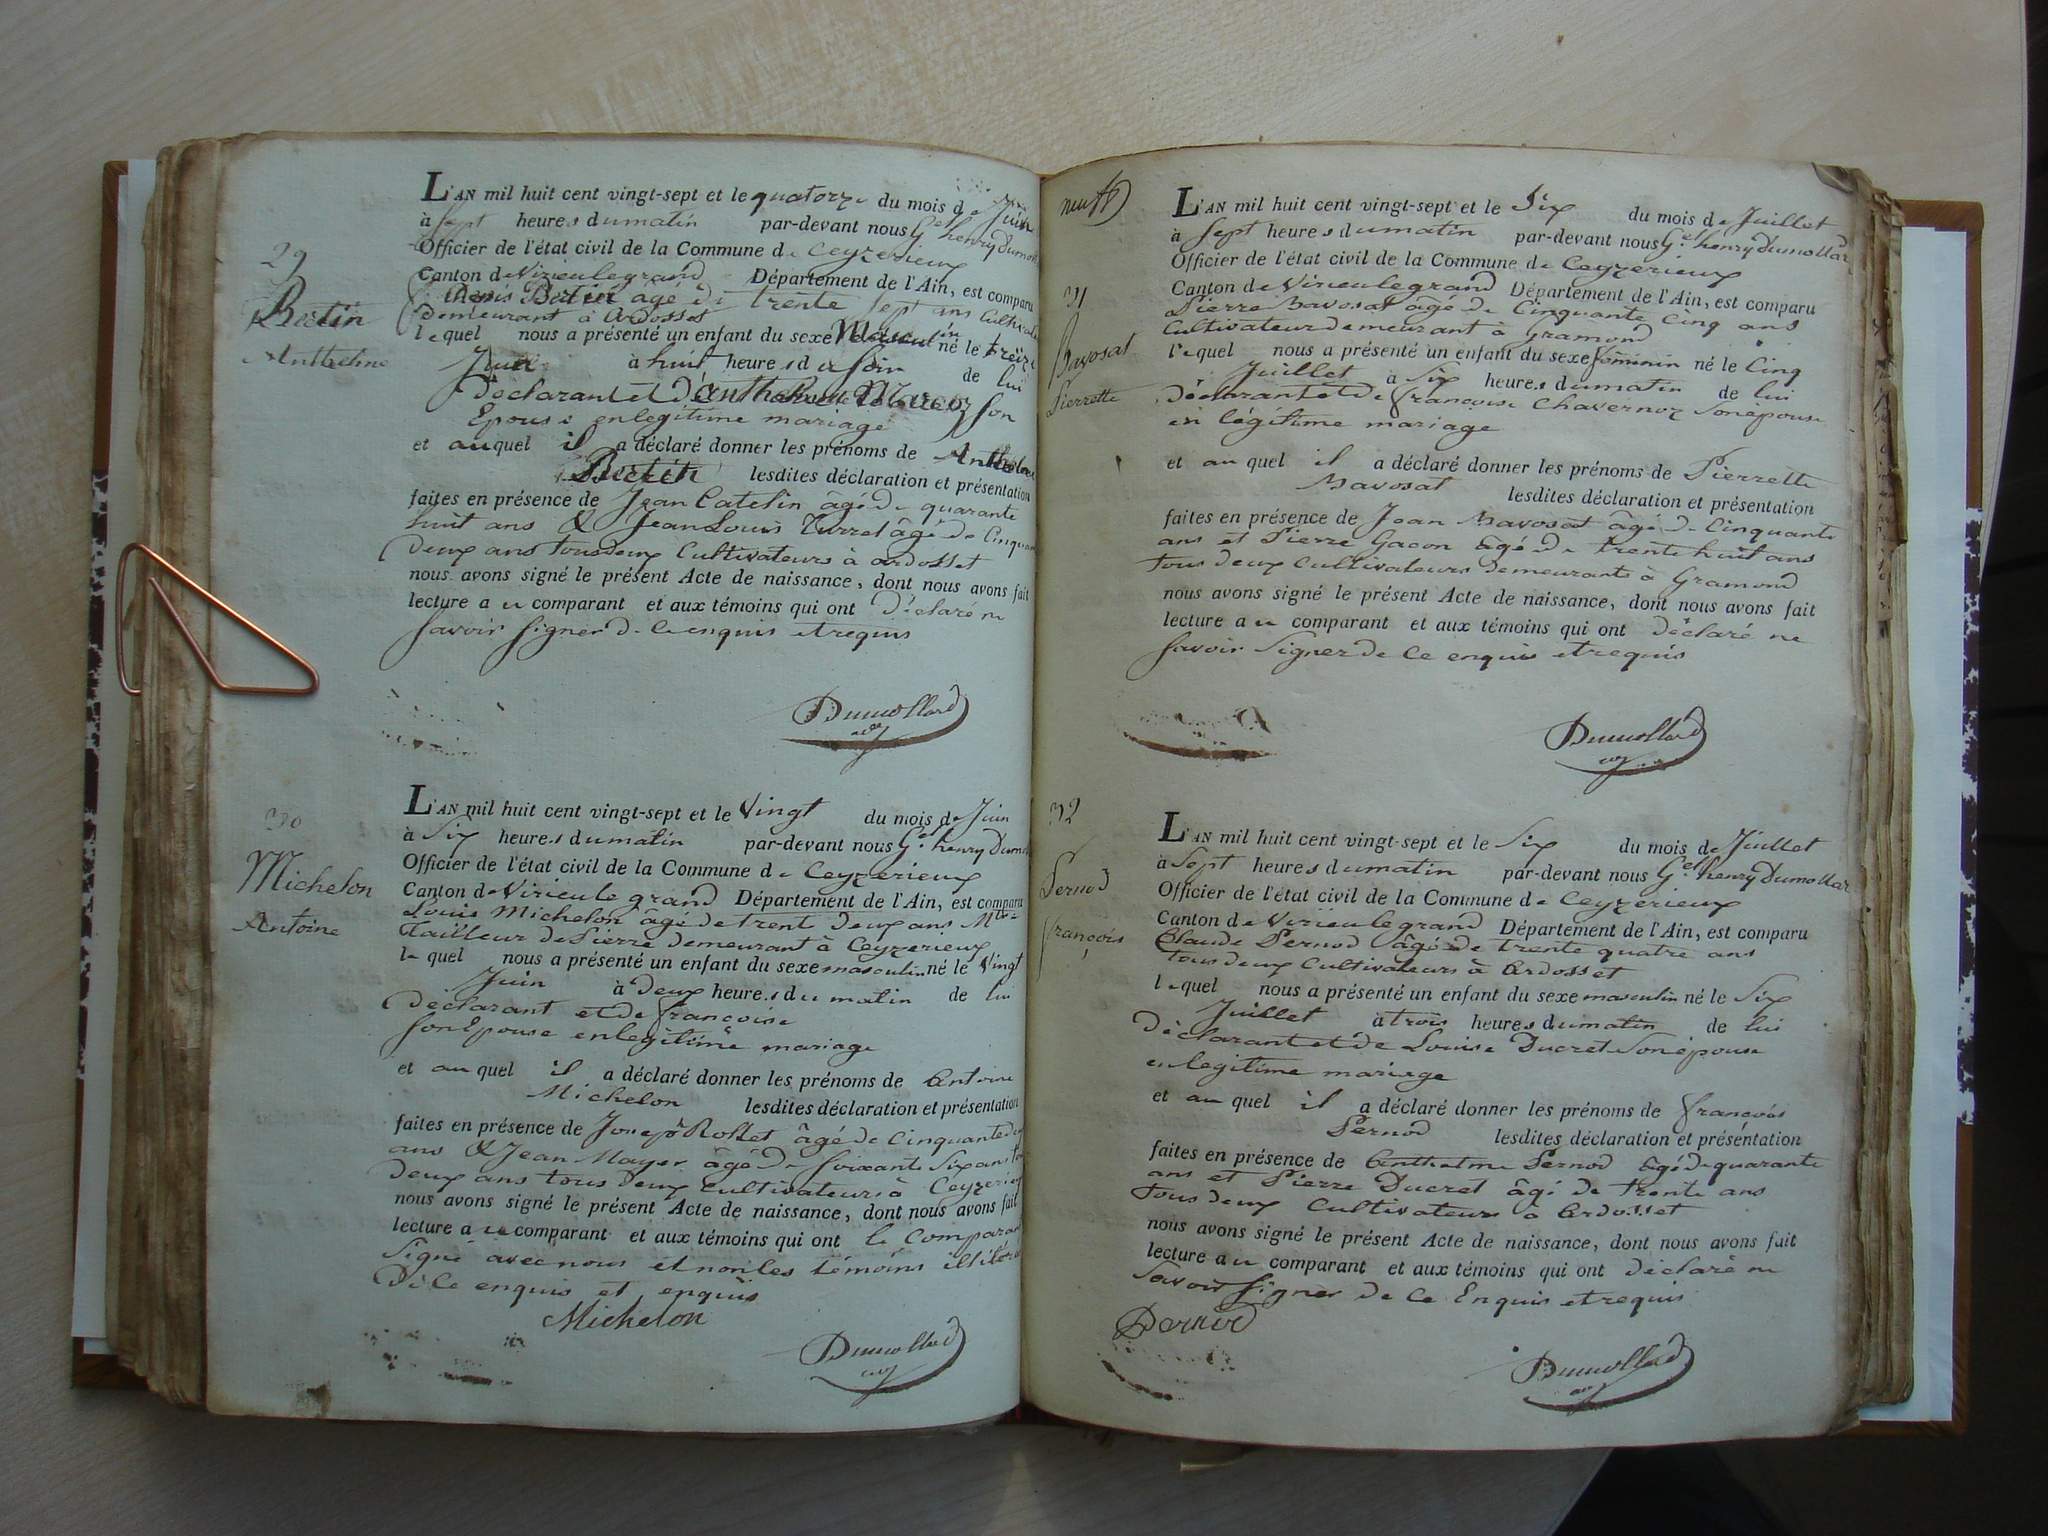 29
Bertin
Anthelme
L'AN mil huit cent vingt-sept et le quatorze du mois de Juin
à sept heures du matin par-devant nous G.el henry Dumollard
Officier de l'état civil de la Commune de Ceyzerieux
Canton de Virieulegrand Département de l'Ain, est comparu
Denis Bertin âgé de trente sept ans Cultivateur
demeurant à Ardosset
lequel nous a présenté un enfant du sexe Masculin né le treize
Juin à huit heures du soir de lui
Déclarant et d'anthelmette Marcoz son
Epouse en legitime mariage
et auquel il a déclaré donner les prénoms de Anthelme
Bertin lesdites déclaration et présentation
faites en présence de Jean Catelin âgé de quarante
huit ans & Jean Louis Turrel âgé de Cinquante
deux ans tous deux Cultivateurs à ardosset
nous avons signé le présent Acte de naissance, dont nous avons fait
lecture au comparant et aux témoins qui ont Déclaré ne
savoir signer de ce enquis et requis
Dumollard
30
Michelon
Antoine
L'AN mil huit cent vingt-sept et le Vingt du mois de Juin
à Six heures du matin par-devant nous G.el henry Dumollard
Officier de l'état civil de la Commune de Ceyzerieux
Canton de Virieule grand Département de l'Ain, est comparu
Louis Michelon âgé de trent deux ans M.tre
tailleur de Pierre demeurant à Ceyzerieux
lequel nous a présenté un enfant du sexe masculin né le Vingt
Juin à Deux heures du matin de lui
Déclarant et de françoise
son Epouse en legitime mariage
et au quel il a déclaré donner les prénoms de Antoine
Michelon lesdites déclaration et présentation
faites en présence de Joseph Rollet âgé de Cinquante deux
ans & Jean Mayer âgé de soixante Six ans tous
deux ans tous deux Cultivateurs à Ceyzerieux
nous avons signé le présent Acte de naissance, dont nous avons fait
lecture au comparant et aux témoins qui ont le Comparant
Signé avec nous et non les témoins illitérés
De Ce enquis et enquis
Michelon
Dumollard
neuf
31
Navosat
Pierrette
L'AN mil huit cent vingt-sept et le Six du mois de Juillet
à sept heures du matin par-devant nous G.el henry Dumollar
Officier de l'état civil de la Commune de Ceyzerieux
Canton de Virieulegrand Département de l'Ain, est comparu
Pierre Navosat âgé de Cinquante Cinq ans
Cultivateur demeurant à Gramond
lequel nous a présenté un enfant du sexe féminin né le Cinq
Juillet à Six heures du matin de lui
Déclarant et de françoise Chavernoz Son épouse
en légitime mariage
et au quel il a déclaré donner les prénoms de Pierrette
Navosat lesdites déclaration et présentation
faites en présence de Jean Navosat âgé de Cinquante
ans et Pierre Gacon âgé de trente huit ans
tous deux Cultivateurs demeurants à Gramond
nous avons signé le présent Acte de naissance, dont nous avons fait
lecture au comparant et aux témoins qui ont Déclaré ne
savoir Signer de Ce enquis et requis
Dumollard
32
Pernod
françois
L'AN mil huit cent vingt-sept et le Six du mois de Juillet
à sept heures du matin par-devant nous G.el henry Dumollar
Officier de l'état civil de la Commune de Ceyzerieux
Canton de Virieulegrand Département de l'Ain, est comparu
Claude Pernod âgé de trente quatre ans
tous deux Cultivateurs à Ardosset
lequel nous a présenté un enfant du sexe masculin né le Six
Juillet à trois heures du matin de lui
Déclarant et de Louise Ducret Son épouse
en legitime mariage
et au quel il a déclaré donner les prénoms de françois
Pernod lesdites déclaration et présentation
faites en présence de Anthelme Pernod âgé de quarante
ans et Pierre Ducret âgé de trente ans
tous deux Cultivateurs à Ardosset
nous avons signé le présent Acte de naissance, dont nous avons fait
lecture au comparant et aux témoins qui ont déclaré ne
savoir signer de Ce Enquis et requis
Pernod
Dumollard